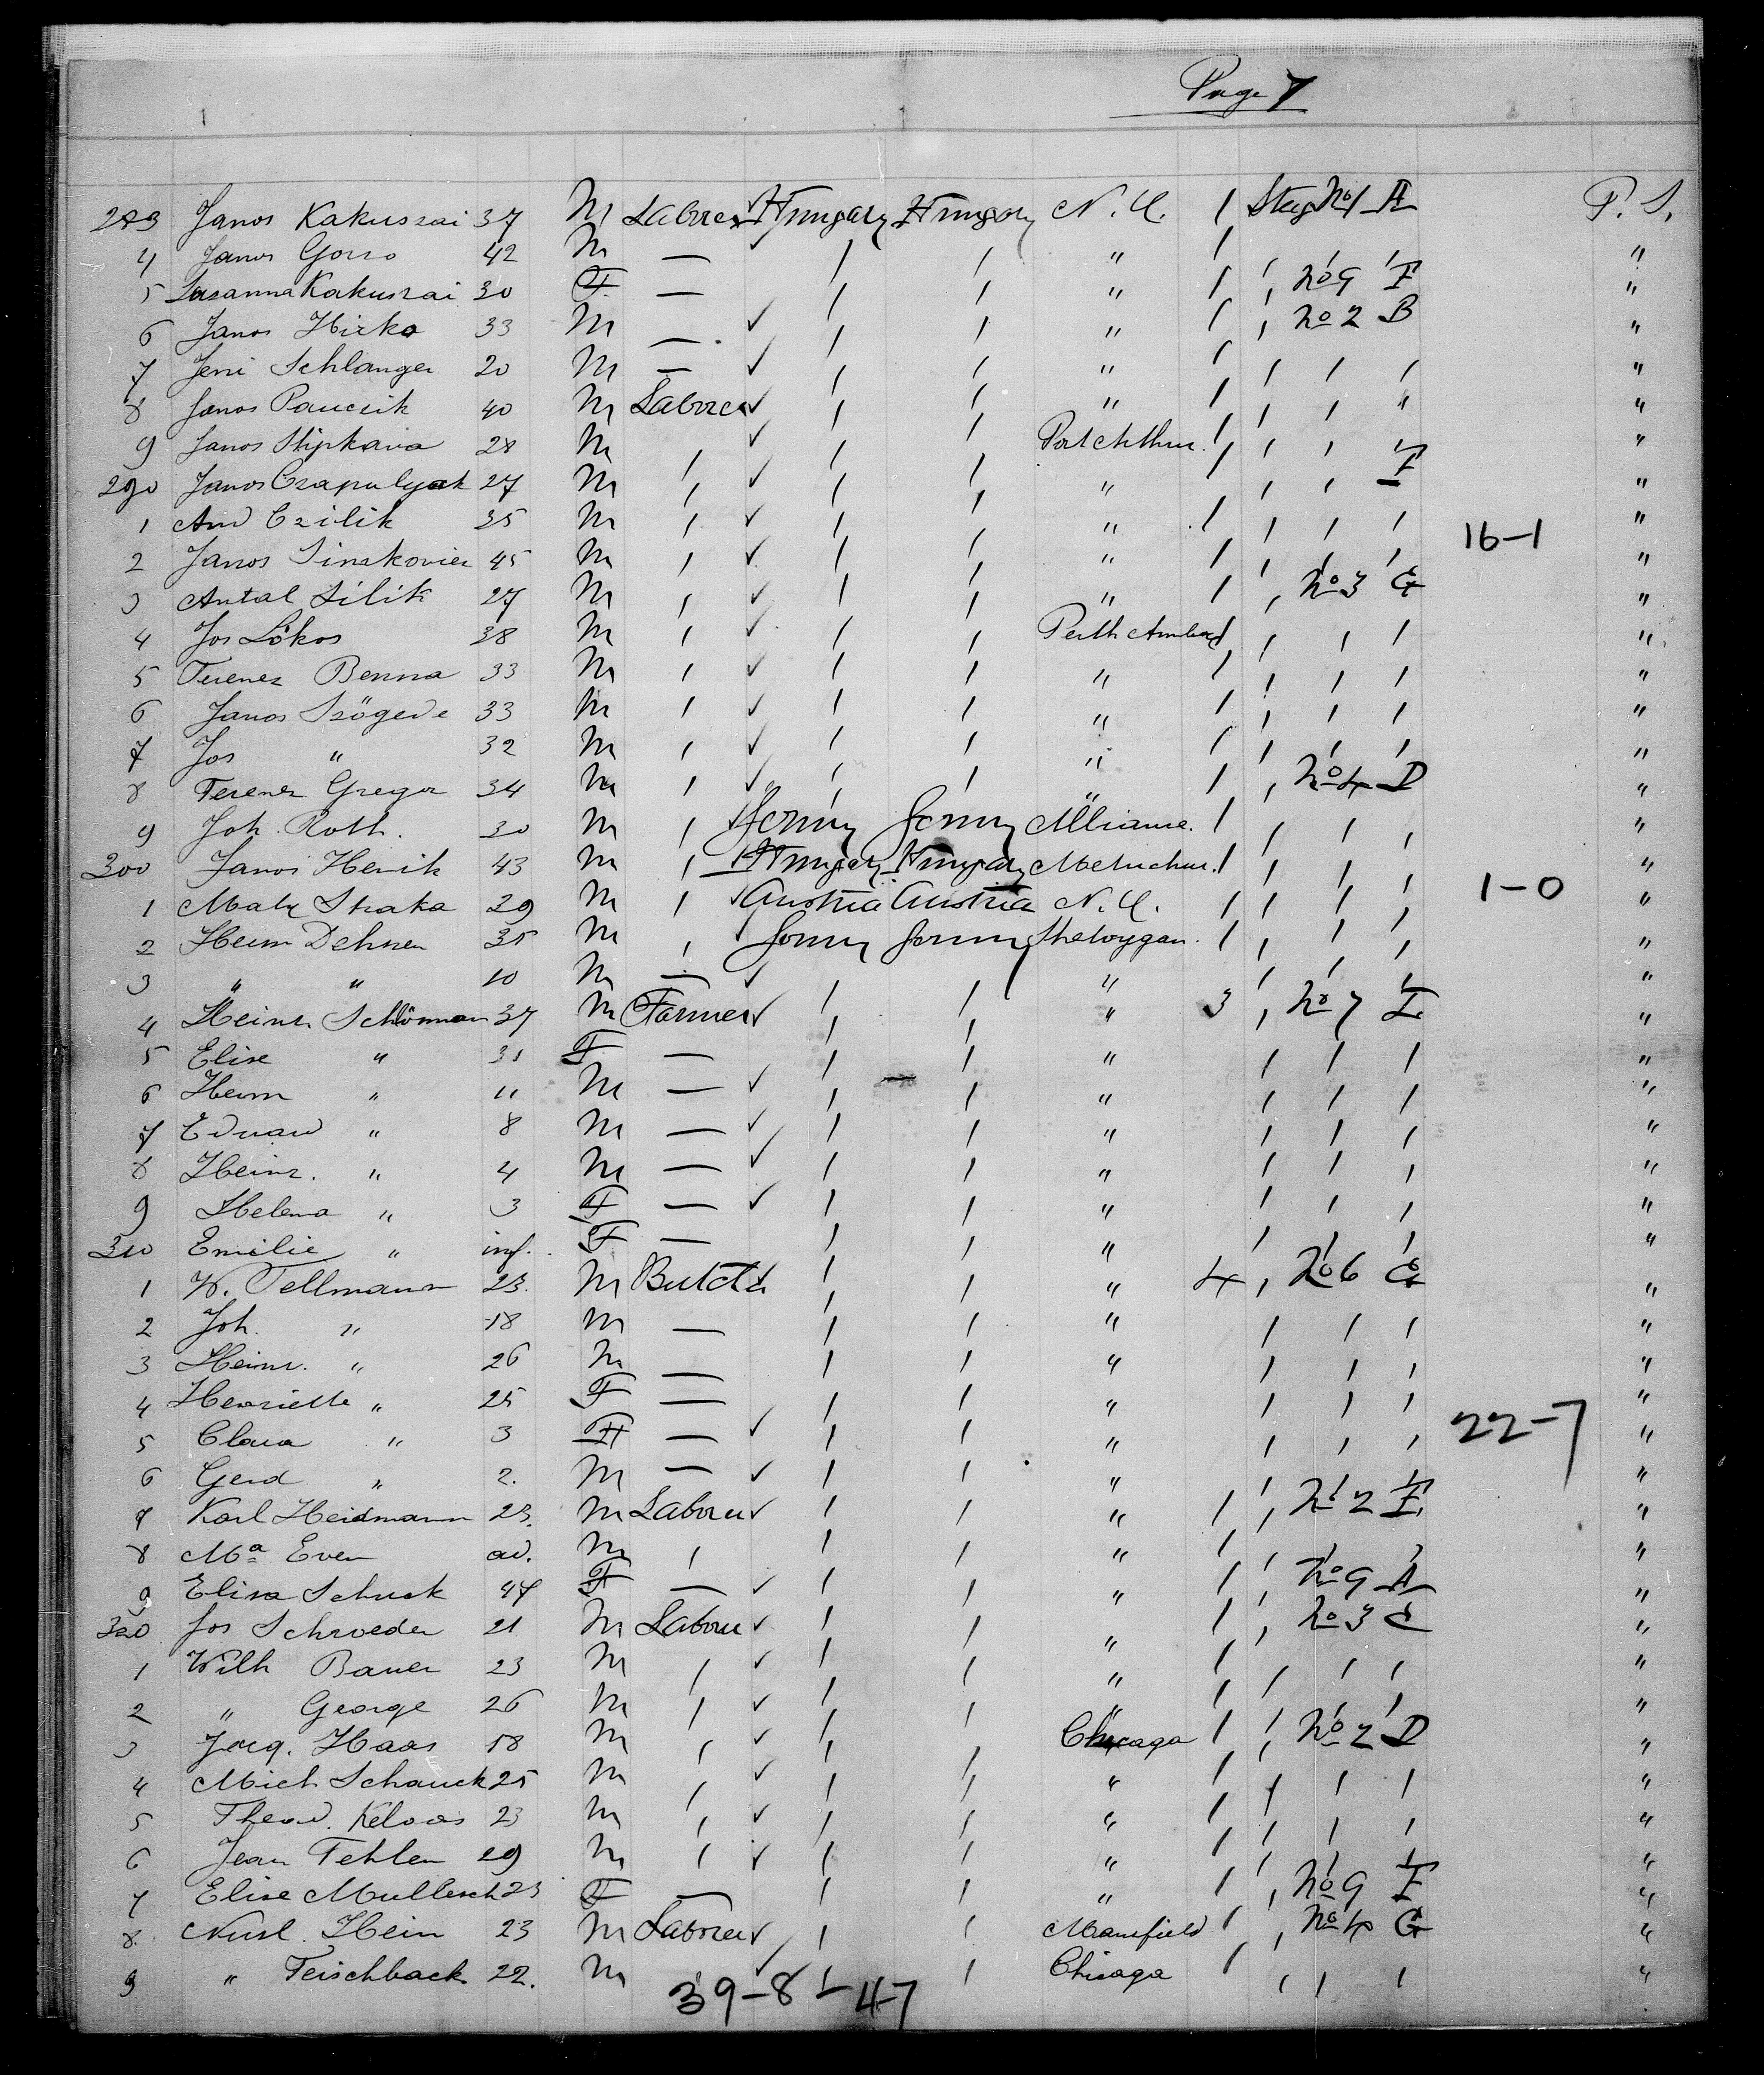 Page 7
283 Janos Kakuszai 37 M Laborer Hungary Hungary N.Y. 1 Steg No 1 A P. S.
4 Janos Gorso 42 M — / / " 1 "
5 Susanna Kakuszai 30 F — / / " 1 / No 9 F "
6 Janos Hirko 33 M — ✓ / / " 1 / No 2 B "
7 Jeni Schlanger 20 M — ✓ / / " 1 / / / "
8 Janos Pauczik 40 M Laborer ✓ / / " 1 / / " "
9 Janos Stipkava 28 M / ✓ / / Port Arthur 1 / / F "
290 Janos Czapulyak 27 M / ✓ / / " 1 / / "
1 And Czilik 35 M / ✓ / / " 1 / / / "
16-1
2 Janos Sinskovier 45 M / ✓ / / " 1 / / / "
3 Antal Silik 27 M / ✓ / / " 1 / No 3 G "
4 Jos Lökos 38 M / ✓ / / Perth Amboy 1 / / / "
5 Ferencz Benna 33 M / ✓ / / " 1 / / / "
6 Janos Szögede 33 M / ✓ / / " 1 / / / "
7 Jos " 32 M / ✓ / / " 1 / / / "
8 Ferencz Gregor 34 M / ✓ / / " 1 / No 4 D "
9 Joh. Roth. 30 M / ✓ Germy Germy Alliance. 1 / / / "
300 Janos Henik 43 M / Hungary Hungary Metuchen. 1 / / / "
1 Maty Straka 29 M / ✓ Austria Austria N.Y. 1 / / / 1-0 "
2 Heinr Dehnen 35 M / ✓ Germy Germy Sheboygan. 1 / / / "
3 " " 10 M — ✓ / / " / / / "
4 Heinr Schönman 37 M Farmer ✓ / / " 3 / No 7 I "
5 Elise " 31 F — / / " / / / "
6 Herm " 11 M — ✓ / / " / / / "
7 Eduard " 8 M — ✓ / / " / / / "
8 Heinr. " 4 M — ✓ / / " / / / "
9 Helena " 3 F — ✓ / / " / / / "
310 Emilie " inf. F — / / " / / / "
1 W. Tellmann 23. M Butcher / / " 4 / No 6 E "
2 Joh. " 18 M — / / " / / / "
3 Heinr. " 26 M — / / " / / / "
4 Henriette " 25 F — / / " / / / "
5 Clara " 3 F — ✓ / / " / / / 22-7 "
6 Gerd " 2. M — ✓ / / " / / / "
7 Karl Heidmann 23. M Laborer ✓ / / " 1 / No 2 F "
8 Ma Even ad. M / / / " 1 / / / "
9 Elisa Schuck 47 F — ✓ / / " 1 / No 9 A "
320 Jos Schroeder 21 M Laborer ✓ / / " 1 / No 3 C "
1 Wilh Bauer 23 M / ✓ / / " 1 / / / "
2 " George 26 M / ✓ / / " 1 / / / "
3 Jorg. Haas 18 M / ✓ / / Chicago 1 / No 2 D "
4 Mich Schauck 25 M / ✓ / / " 1 / / / "
5 Theod. Keloas 23 M / ✓ / / " 1 / / / "
6 Jean Fehlen 29 M / ✓ / / " 1 / / / "
7 Elise Mullesch 23 F — / / " 1 / No 9 F "
8 Nusl. Hein 23 M Laborer ✓ / / Mansfield 1 / No 4 G "
9 " Feischback 22. M / ✓ / / Chicago 1 / / / "
39-8-47